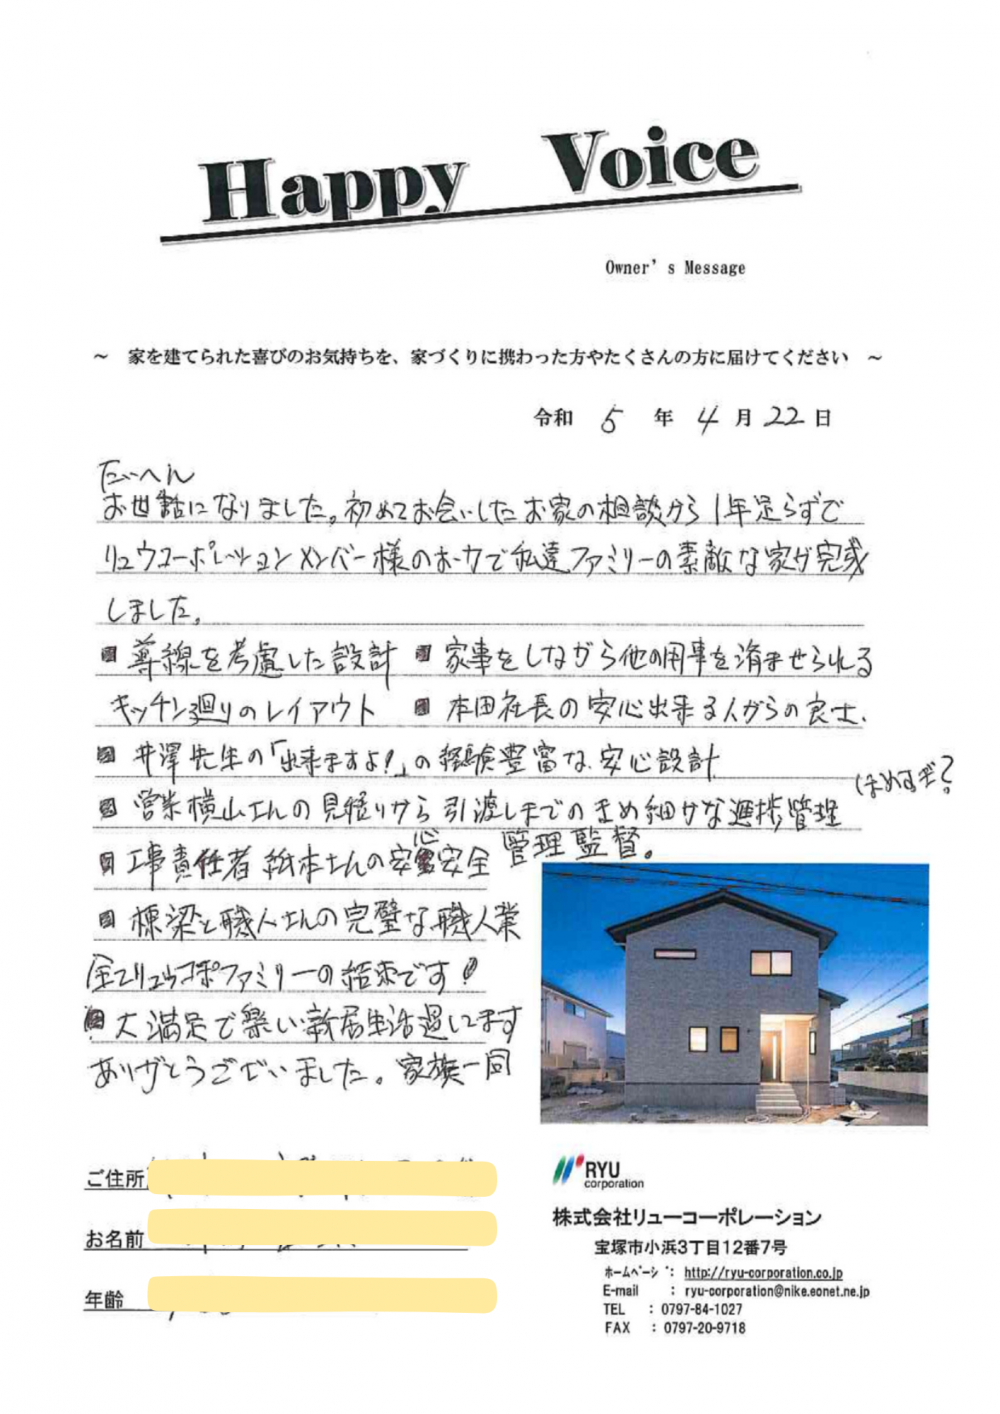 Happy Voice
Owner's Message
～ 家を建てられた喜びのお気持ちを、家づくりに携わった方やたくさんの方に届けてください ～
令和 5 年 4 月 22 日
たいへん
お世話になりました。初めてお会いしたお家の相談から1年足らずで
リュウコーポレーションメンバー様のお力で私達ファミリーの素敵な家が完成
しました。
導線を考慮した設計 家事をしながら他の用事を済ませられる
キッチン廻りのレイアウト 本田社長の安心出来る人がらの良さ、
井澤先生の「出来ますよ!」の経験豊富な、安心設計
ほめすぎ?
営業横山さんの見積りから引渡しまでのきめ細かな進捗管理
工事責任者 松本さんの安心安全 管理監督。
棟梁と職人さんの完璧な職人業
全てリュウコポファミリーの結束です!
大満足で楽しい新居生活過してます
ありがとうございました。家族一同
ご住所
お名前
年齢
RYU
corporation
株式会社リューコーポレーション
宝塚市小浜3丁目12番7号
ホームページ: http://ryu-corporation.co.jp
E-mail : ryu-corporation@nike.eonet.ne.jp
TEL : 0797-84-1027
FAX : 0797-20-9718